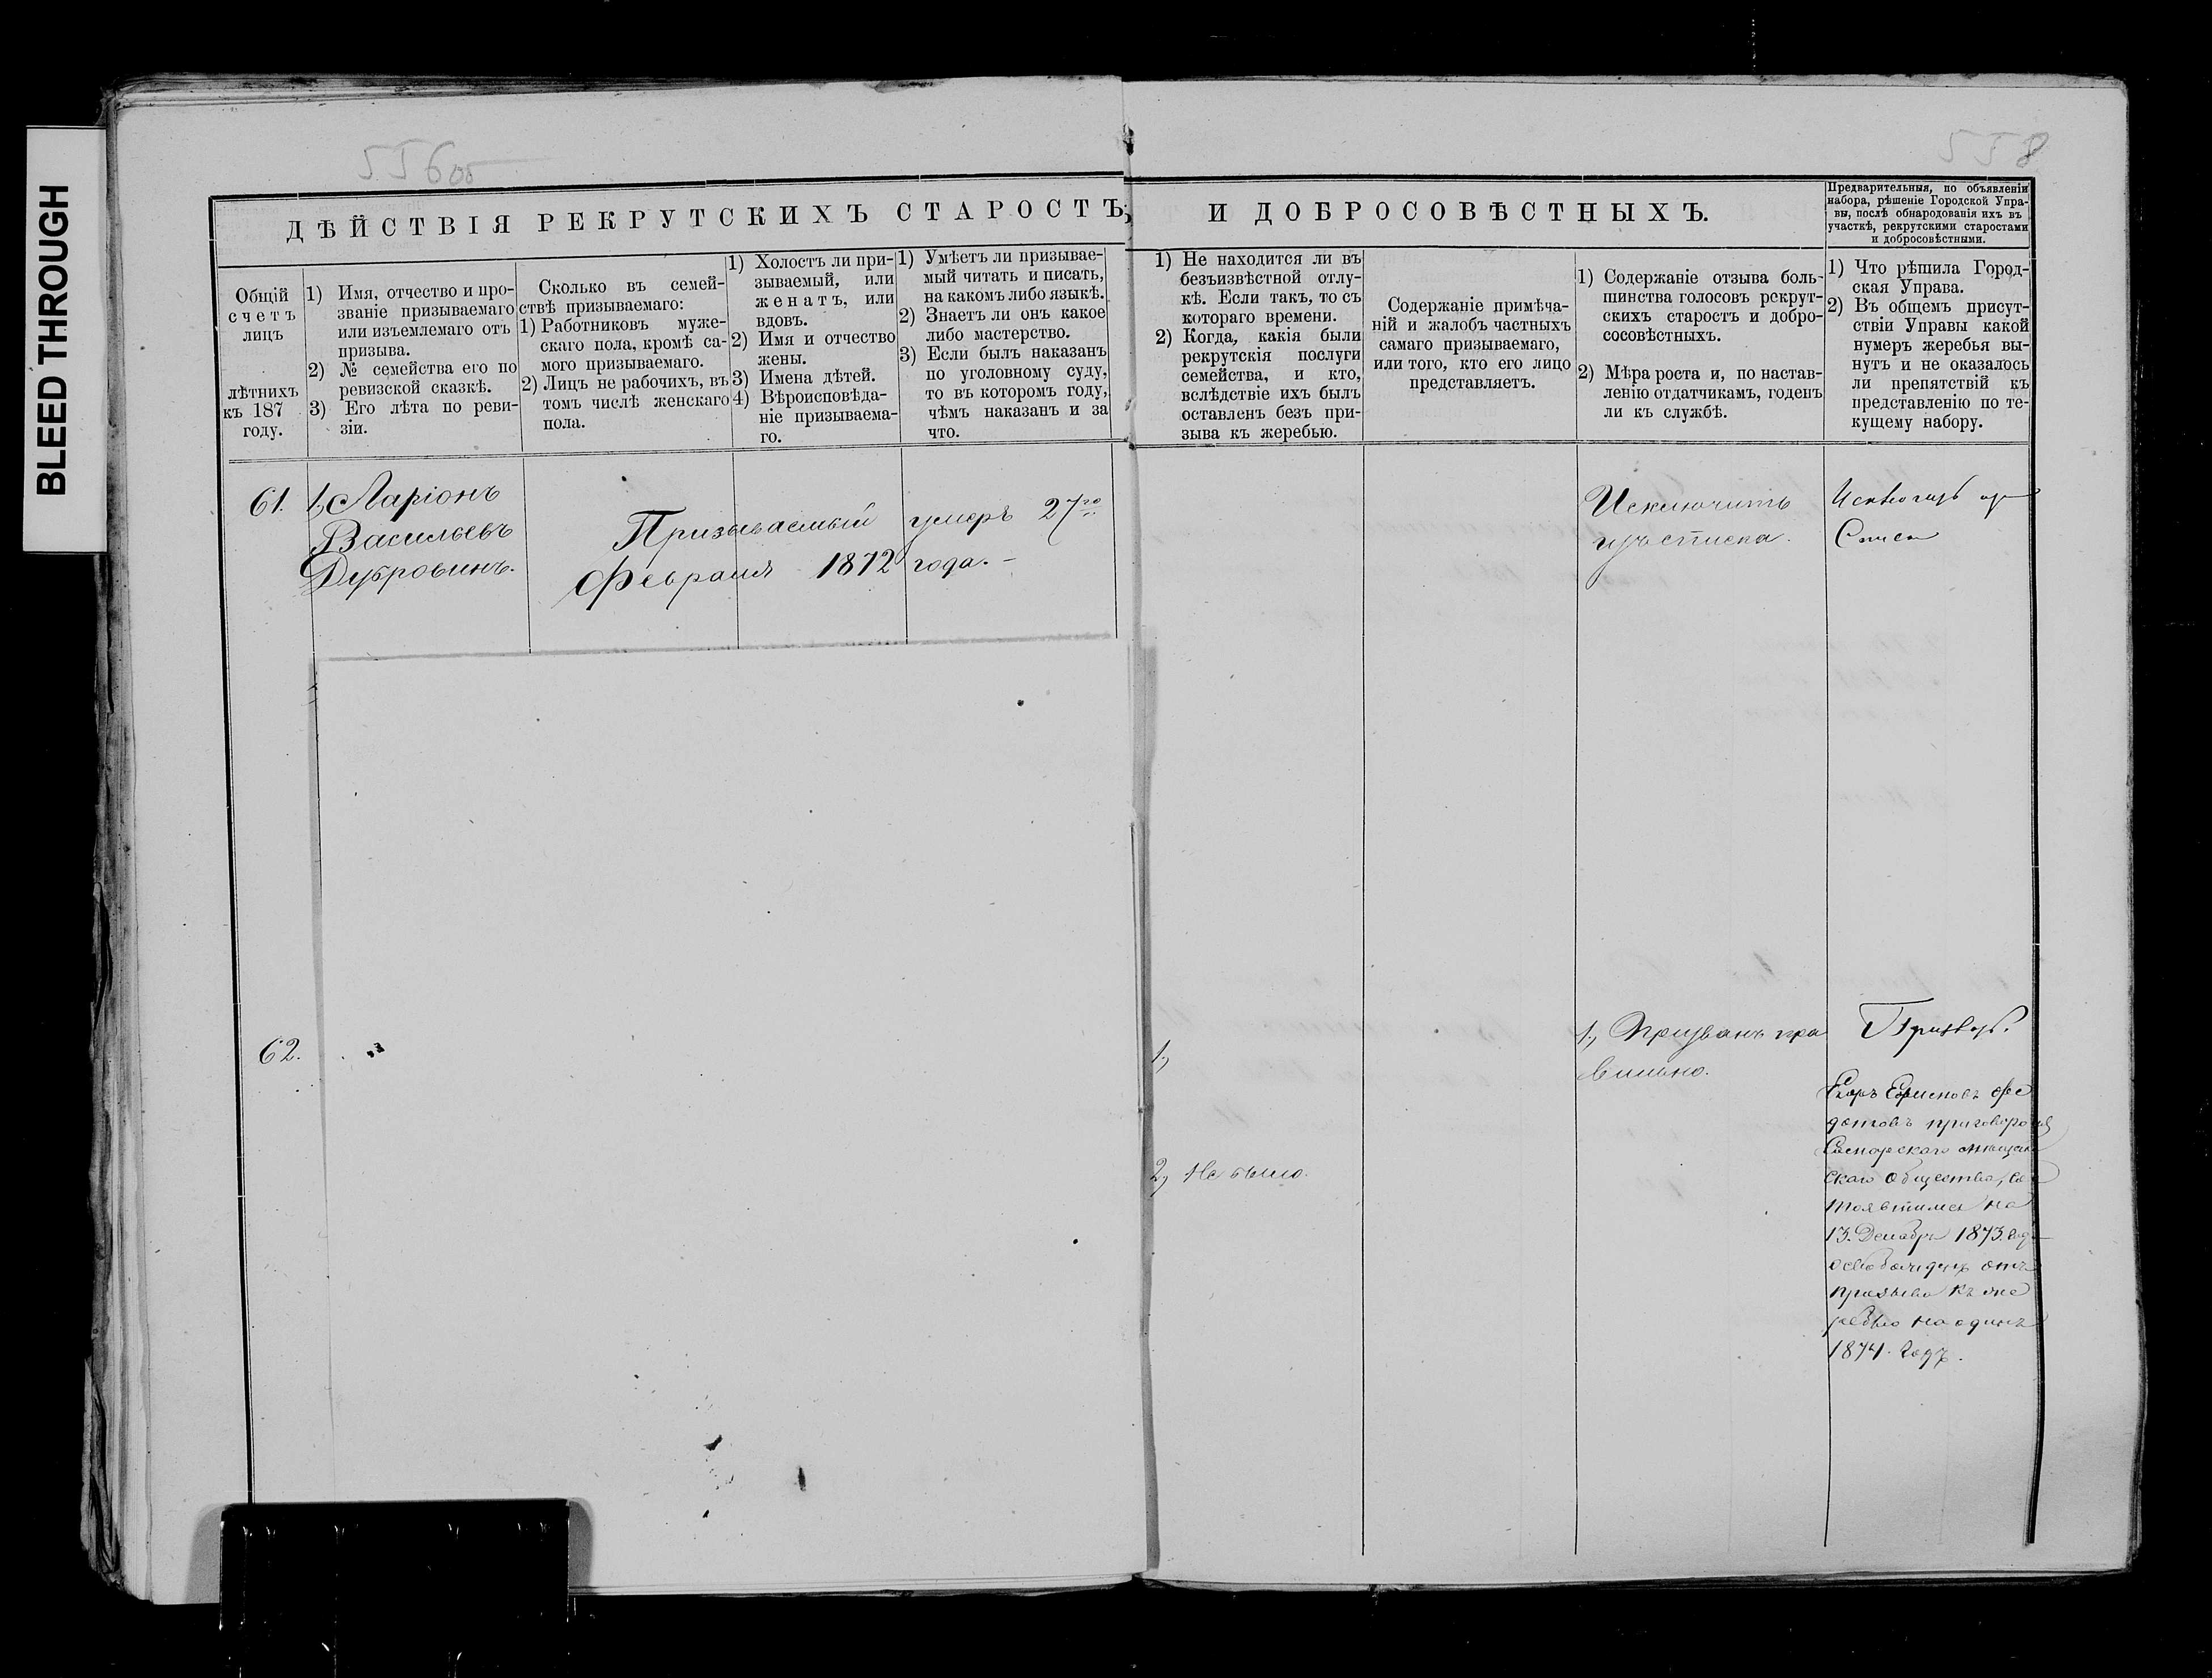 BLEED THROUGH
556об
558
ДѢЙСТВІЯ РЕКРУТСКИХЪ СТАРОСТЪ И ДОБРОСОВѢСТНЫХЪ.
Предварительныя, по объявленіи
набора, рѣшеніе Городской Упра-
вы, послѣ обнародованія ихъ въ
участкѣ, рекрутскими старостами
и добросовѣстными.
Общій
счетъ
лицъ
лѣтнихъ
къ 187
году.
1) Имя, отчество и про-
званіе призываемаго
или изъемлемаго отъ
призыва.
2) № семейства его по
ревизской сказкѣ.
3) Его лѣта по реви-
зіи.
Сколько въ семей-
ствѣ призываемаго:
1) Работниковъ муже-
скаго пола, кромѣ са-
мого призываемаго.
2) Лицъ не рабочихъ, въ
томъ числѣ женскаго
пола.
1) Холостъ ли при-
зываемый, или
женатъ, или
вдовъ.
2) Имя и отчество
жены.
3) Имена дѣтей.
4) Вѣроисповѣда-
ніе призываема-
го.
1) Умѣетъ ли призывае-
мый читать и писать,
на какомъ либо языкѣ.
2) Знаетъ ли онъ какое
либо мастерство.
3) Если былъ наказанъ
по уголовному суду,
то въ которомъ году,
чѣмъ наказанъ и за
что.
1) Не находится ли въ
безъизвѣстной отлу-
кѣ. Если такъ, то съ
котораго времени.
2) Когда, какія были
рекрутскія послуги
семейства, и кто,
вслѣдствіе ихъ былъ
оставленъ безъ при-
зыва къ жеребью.
Содержаніе примѣча-
ній и жалобъ частныхъ
самаго призываемаго,
или того, кто его лицо
представляетъ.
1) Содержаніе отзыва боль-
шинства голосовъ рекрут-
скихъ старостъ и добро-
сосовѣстныхъ.
2) Мѣра роста и, по настав-
ленію отдатчикамъ, годенъ
ли къ службѣ.
1) Что рѣшила Город-
ская Управа.
2) Въ общемъ присут-
ствіи Управы какой
нумеръ жеребья вы-
нутъ и не оказалось
ли препятствій къ
представленію по те-
кущему набору.
61.
1, Ларіонъ
Васильевъ
Дубровинъ.
Призываемый умеръ 27го
Февраля 1872 года. –
Исключить
изъ списка.
Исключить из
Списк
62.
1,
2, Не было.
1, Призванъ пра
вильно.
Призвать.
Егоръ Ефимовъ Фе
дотовъ приговоромъ
Самарскаго мѣщан
скаго Общества, со
тоявшимся на
13. Декабря 1873. года
освобожденъ отъ
призыва къ же
ребью на одинъ
1874. годъ.